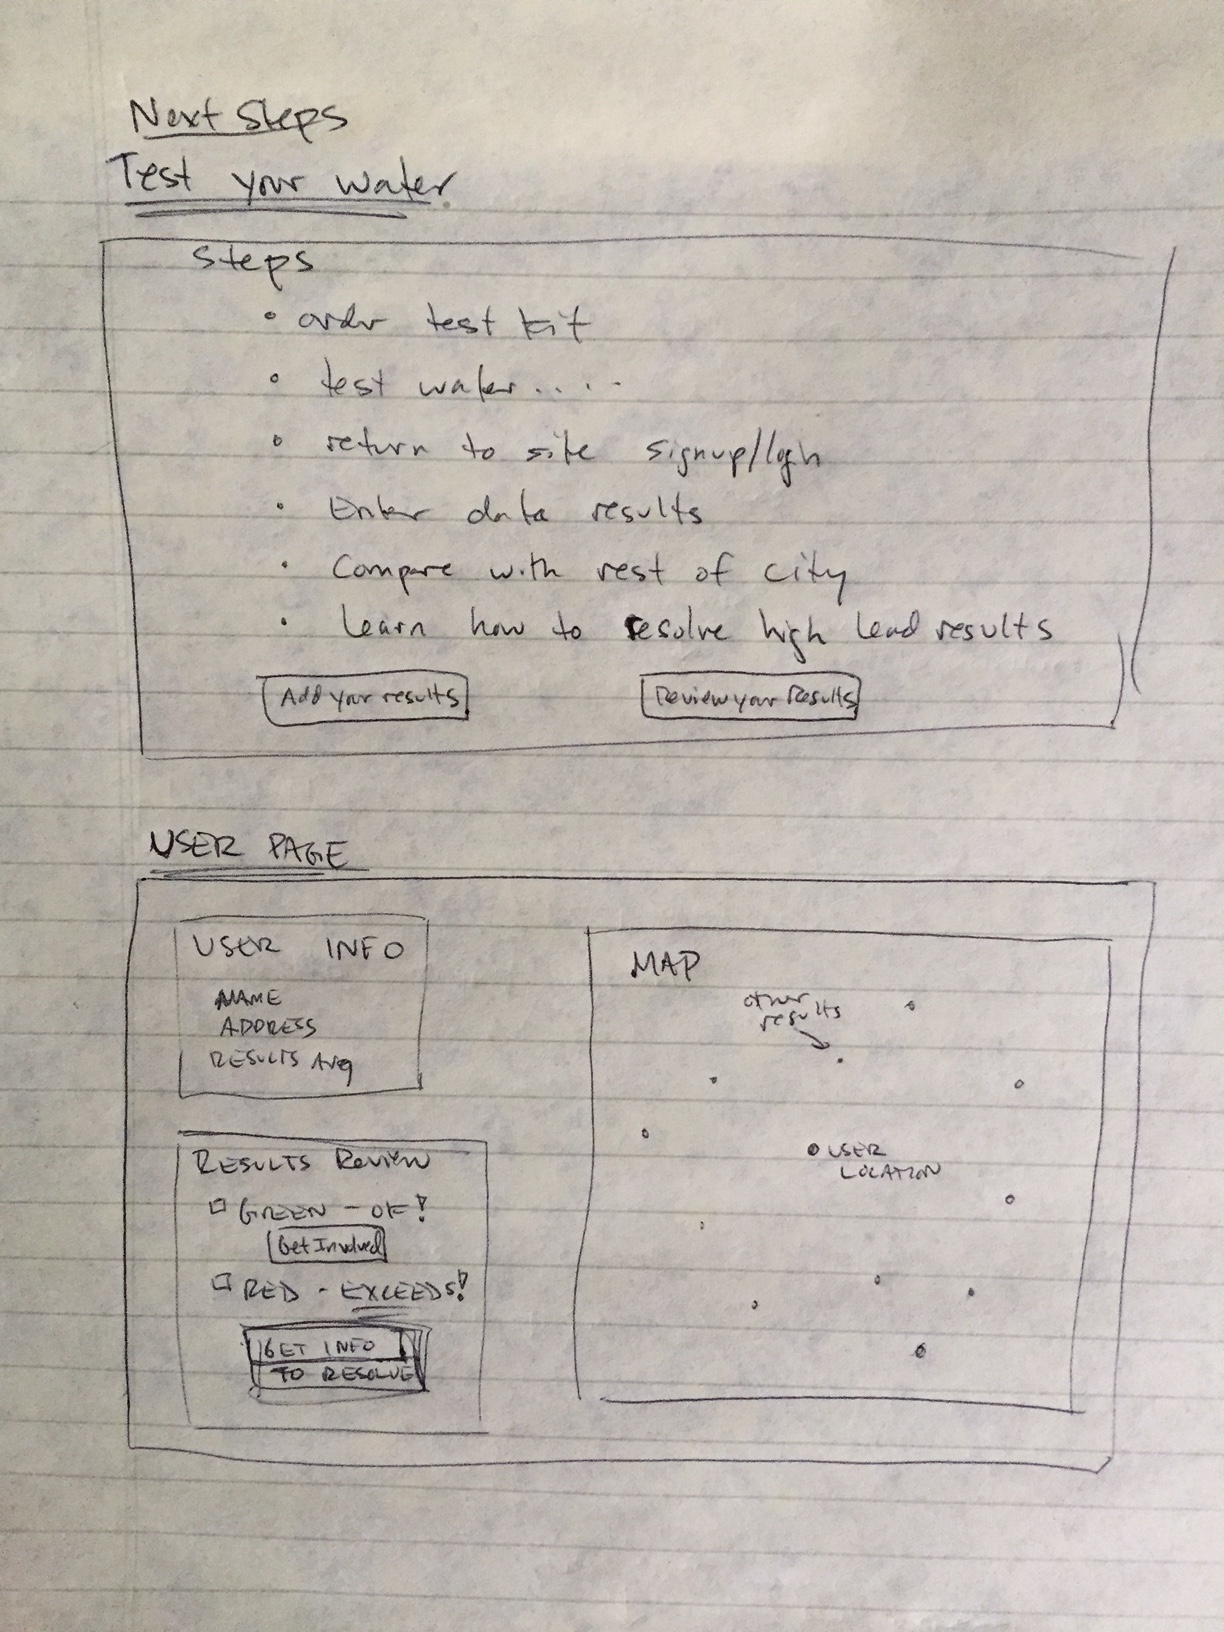 Next Steps
Test your water
Steps
• order test kit
• test water.....
• return to site signup/login
• Enter data results
• Compare with rest of city
• Learn how to resolve high lead results
Add your results
Review your Results
USER PAGE
USER INFO
NAME
ADDRESS
RESULTS Avg
RESULTS Review
GREEN - OK!
Get Involved
RED - EXCEEDS!
GET INFO
TO RESOLVE
MAP
other
results
USER
LOCATION